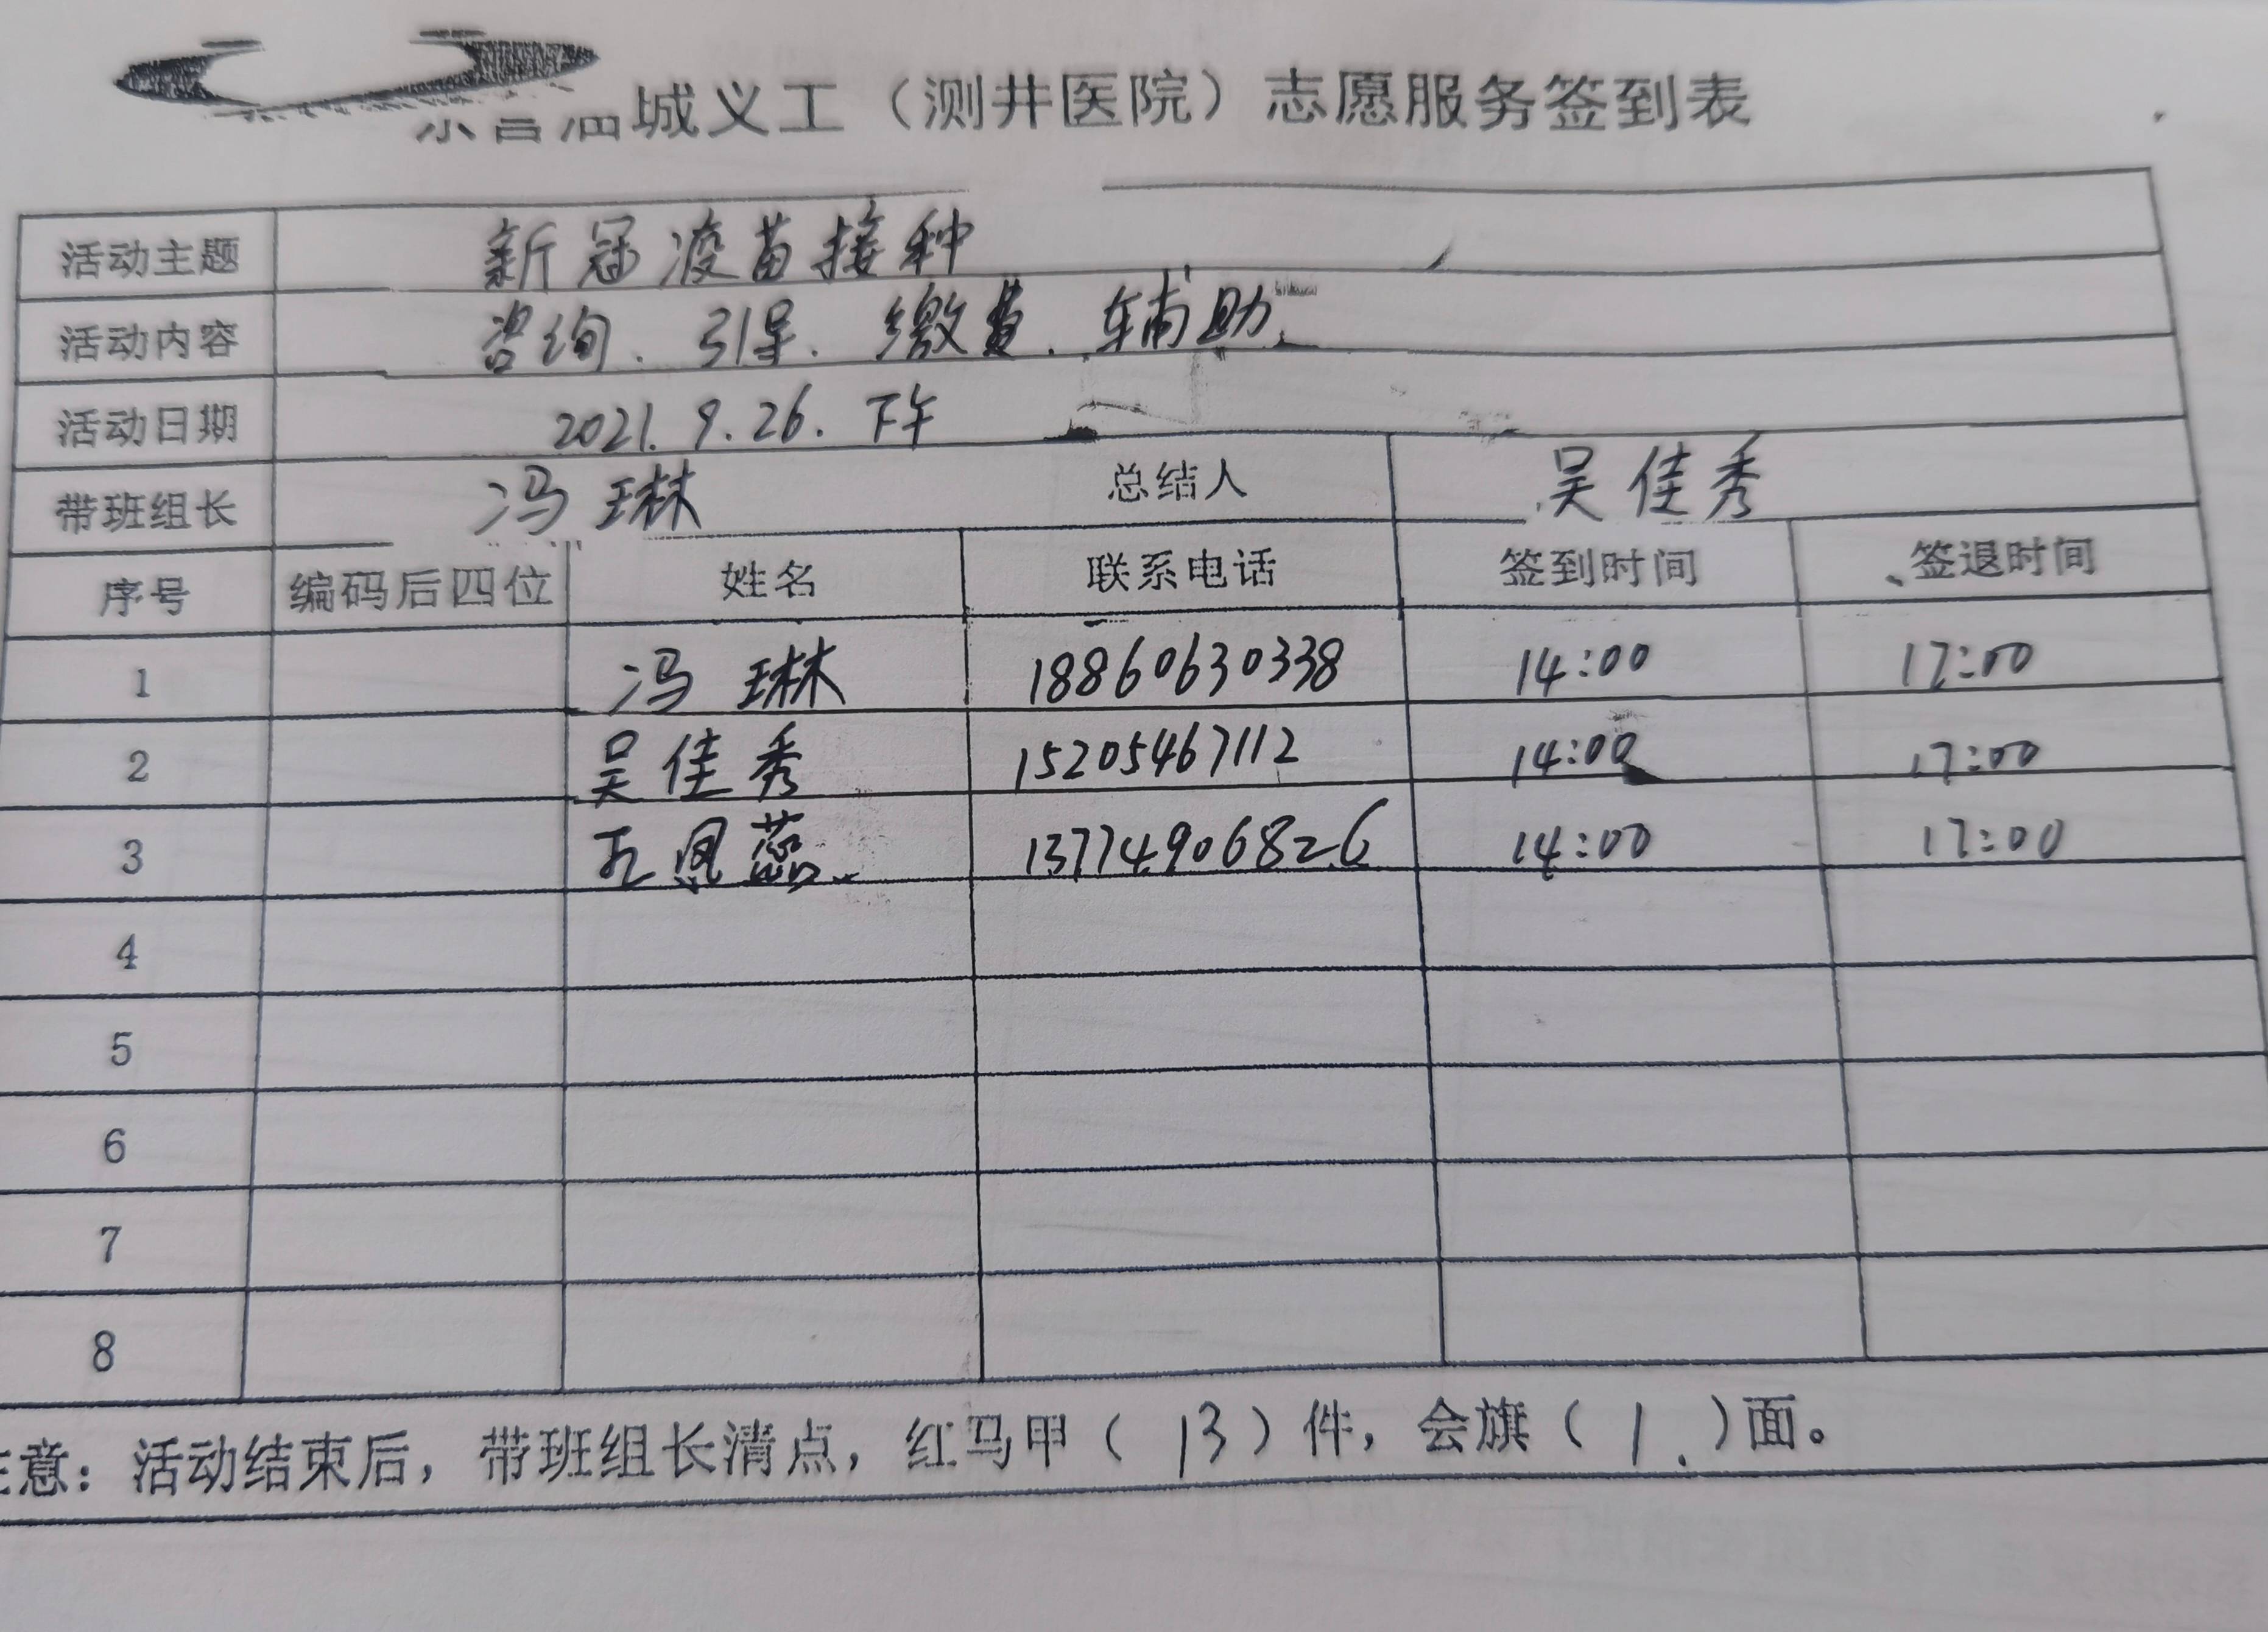 城义工（测井医院）志愿服务签到表
活动主题 新冠疫苗接种
活动内容 咨询、引导、缴费、辅助
活动日期 2021.9.26.下午
带班组长 冯琳 总结人 吴佳秀
序号 编码后四位 姓名 联系电话 签到时间 签退时间
1 冯琳 18860630338 14:00 17:00
2 吴佳秀 15205467112 14:00 17:00
3 凤蕊 13774906826 14:00 17:00
4
5
6
7
8
注意：活动结束后，带班组长清点，红马甲（13）件，会旗（1.）面。